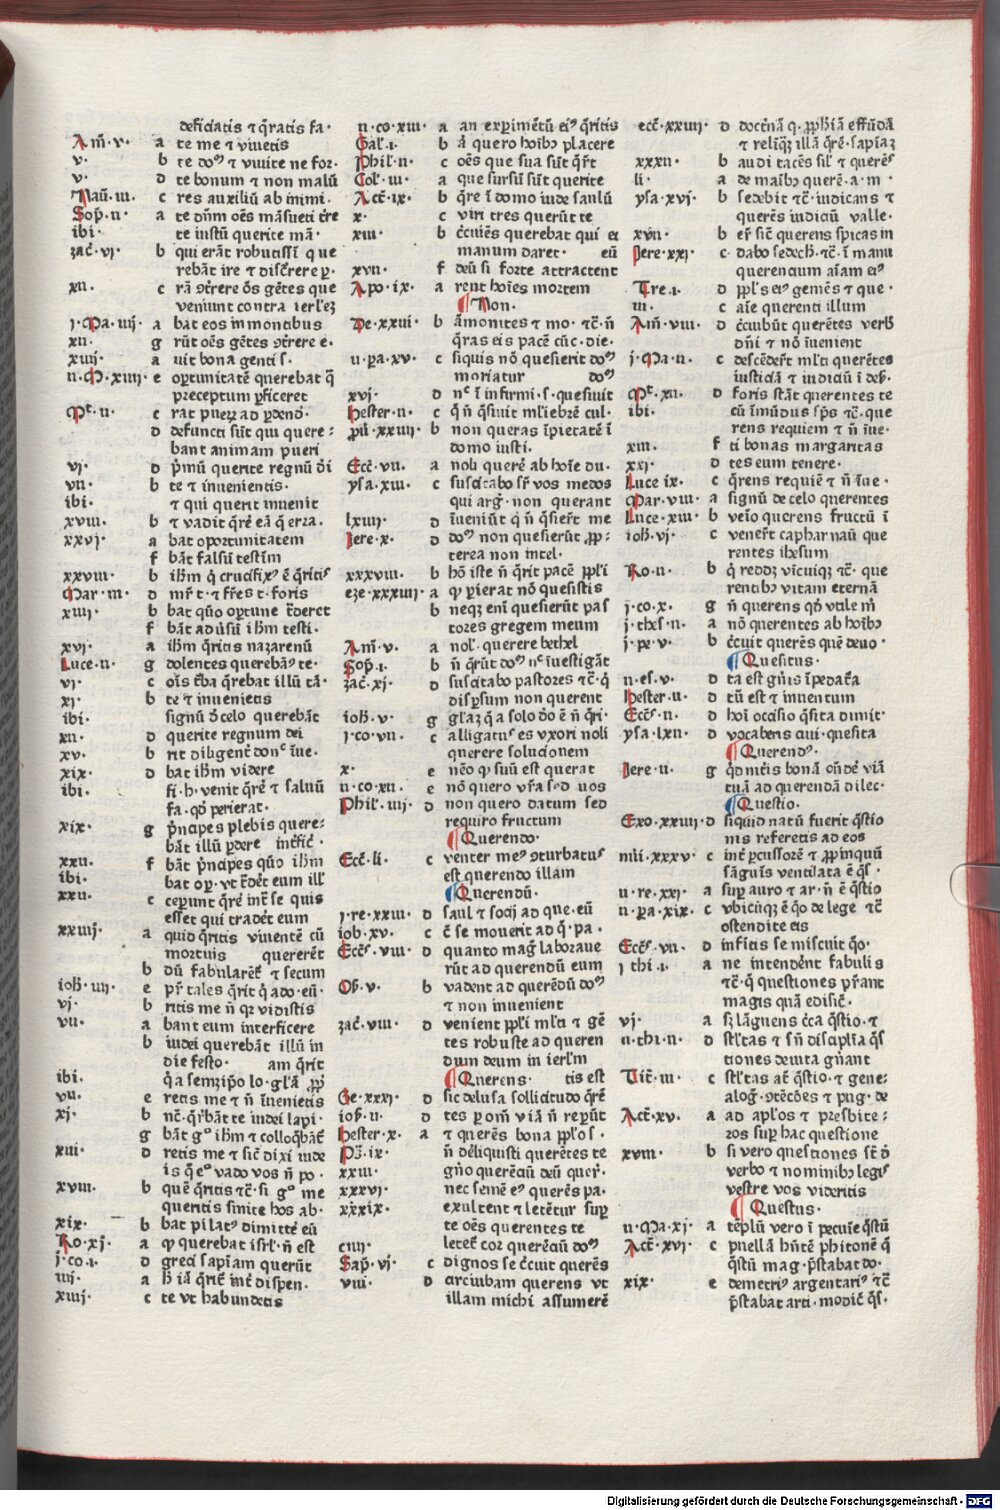 deficiatis ⁊ q̄ratis fa·
Am̄·v· a te me ⁊ viuetis
v· b te doꝰ ⁊ viuite ne for·
v· d te bonum ⁊ non malū
Nau̅·iii· c res auxiliū ab inimi·
Sop̄·ii· a te dn̄m oēs māsueti t̄re
ibi· te iustū querite mā·
zac̄·vj· b qui erāt robustissi q̄ ue
rebāt ire ⁊ discrere p·
xii· c rā ꝯt̄rere ōs gētes que
veniunt contra ierl̄eꝫ
j·Ma·iij· a bat eos in montibus
xii· g rūt oēs gētes ꝯt̄rere e·
xiiij· a uit bona genti s·
ii·M·xiiij· e oportunitatē querebat q̄
preceptum p̄ficeret
Mt̄·ii· c rat pueꝝ ad ꝑdendo·
d defuncti sūt qui quere⸗
bant animam pueri
vj· d p̄mū querite regnū d̄i
vii· b te ⁊ inuenietis·
ibi· ⁊ qui querit inuenit
xviii· b ⁊ vadit q̄rē eā q̄ erra·
xxvj· a bat oportunitatem
f bāt falsū testim̄
xxviii· b ih̄m q̄ crucifixꝰ ē q̄ritis
Mar·iii· d mr̄ t· ⁊ fr̄es t·foris
xiiij· b bat quō oportune t̄deret
f bāt aduersū ih̄m testi·
xvj· a ih̄m q̄ritis nazarenū
Luce·ii· g dolentes querebāꝰ te·
vj· c oīs t̄ba q̄rebat illū tā·
xj· b te ⁊ inuenietis
ibi· signū d̄ celo querebāt
xii· d querite regnum dei
xv· b rit diligent̄ donᶜ īue·
xix· d bat ih̄m videre
ibi· fi·h·venit q̄rē ⁊ saluū
fa·qd̄ perierat·
xix· g p̄ncipes plebis quere⸗
bāt illū ꝑdere int̄fic̄·
xxii· f bāt p̄ncipes quō ih̄m
ibi· bat op̄·vt t̄det̄ eum ill̄
xxii· c ceperunt q̄rē int̄ se quis
esset qui tradet̄ eum
xxiiij· a quid q̄ritis viuentē cū
mortuis quererēt
b dū fabularēt̄ ⁊ secum
ioh̄·iiij· e pr̄ tales q̄rit q̄ ado·eū·
vj· b ritis me n̄ qꝫ vidistis
vii· a bant eum interficere
b iudei querebāt illū in
die festo· am q̄rit
ibi· q̄ a semꝫip̄o lo·gl̄ā ꝓp̄
vii· e retis me ⁊ n̄ īuenietis
xj· b nc̄·q̄rbāt te iudei lapi·
g bāt gᵒ ih̄m ⁊ colloq̄bāt̄
xiii· d retis me ⁊ sic̄ dixi iude
is q̄ eᵒ vado vos n̄ po·
xviii· b quē q̄ritis ⁊c̄·si gᵒ me
queritis sinite hos ab·
xix· b bat pilatꝰ dimitte eū
Ro·xj· a ꝙ querebat isrl̄·n̄ est
j·co·i· d greci sapiam querūt
iiij· a h̄ iā q̄rit̄ int̄ dispen·
xiiij· c te vt habundetis
ii·co·xiii· a an exꝑimētū eiꝰ q̄ritis
Gal̄·i· b ā quero hoībꝰ placere
Phil̄·ii· c oēs que sua sūt q̄rt̄
Col̄·iii· a que sursū sūt querite
Act̄·ix· b q̄re ī domo iude saulū
x· c viri tres querūt te
xiii· b c̄cuiēs querebat qui ei
manum daret· eū
xvii· f deū si forte attractent
Apo·ix· a rent hoīes mortem
¶Non·
De·xxiii· b āmonites ⁊ mo·⁊c̄·n̄
q̄ras eis pacē cūc·die·
ii·pa·xv· c siquis nō quesierit doꝰ
moriatur doꝰ
xvj· d nᶜ ī infirmi·s·quesiuit
Hester·ii· c q̄ n̄ q̄siuit ml̄iebrē cul·
p̄u·xxiiij· b non queras īpietatē ī
domo iusti·
Ecc̄·vii· a noli querē ab hoīe du·
ysa·xiii· c suscitabo sr̄ vos medos
qui arḡ·non querant
lxiiij· d īueniūt q̄ n̄ q̄sier̄t me
Iere·x· d doꝰ non quesierūt ꝓp̄·
terea non intel·
xxxviii· b hō iste n̄ q̄rit pacē ppl̄i
eze·xxxiiij· a ꝙ ꝑierat nō quesistis
b neqꝫ eni̅ quesierūt pas
tores gregem meum
Am̄·v· a nol·querere bethel
Sop̄·i· b n̄ q̄rūt doꝰ nᶜ īuestigāt
zac̄·xj· d suscitabo pastores ⁊c̄·q̄
disꝑsum non querent
ioh̄·v· g gl̄aꝫ q̄ a solo d̄o ē n̄ q̄ri·
j·co·vii· c alligatꝰ es vxori noli
querere solucionem
x· e nēo ꝙ suū est querat
ii·co·xii· e nō quero vr̄a sed vos
Phil̄·iiij· d non quero datum sed
requiro fructum
¶Querendo·
Ecc̄·li· c venter meꝰ ꝯturbatꝰ
est querendo illam
¶Querendū·
j·re·xxiii· d saul ⁊ socij ad que·eū
iob·xv· c c̄ se mouerit ad q̄·pa·
Ecc̄s·viii· d quanto mag̅ laboraue
rūt ad querendū eum
Os̄·v· b vadent ad querēdū doꝰ
⁊ non inuenient
zac̄·viii· d venient ppl̄i ml̄ti ⁊ gē
tes robuste ad queren
dum deum in ierl̄m
¶Querens· tis est
Ge·xxxj· d sic delusa sollicitudo q̄rē
iob·ii· d tes ꝑ om̄ viā n̄ reꝑūt
Hester·x· a ⁊ querēs bona ppl̄o s·
Ps̄·ix· n̄ deliquisti querētes te
xxiii· gn̄o querēciū deū quer̄·
xxxvj· nec semē eꝰ querēs pa·
xxxix· exultent ⁊ letētur suꝑ
te oēs querentes te
ciiij· letet̄ cor querēciū doꝰ
Sap̄·vj· c dignos se c̄cuit querēs
viii· d arciubam querens vt
illam michi assumerē
ecc̄·xxiiij· d doct̄nā q·ꝓph̄iā effūdā
⁊ reliqꝫ illā q̄rē·sapiaꝫ
xxxii· b audi tacēs sil̄ ⁊ querēs
li· a de maībꝰ querē·a·m·
ysa·xvj· b sedebit ⁊c̄·iudicans ⁊
querēs iudiciū valle·
xvii· b er̄ sic̄ querens spicas in
Iere·xxj· c dabo sedech̄·⁊c̄·ī manu
querencium aīam eiꝰ
Tre·i· d ppl̄s eiꝰ gemēs ⁊ que·
iii· c aīe querenti illum
Am̄·viii· d c̄cuibūt querētes verbū
dn̄i ⁊ nō īuenient
j·Ma·ii· c descēder̄t ml̄ti querētes
iusticiā ⁊ iudiciū ī des̄·
Mt̄·xii· d foris stāt querentes te
ibi· cū īmūdus sp̄s ⁊c̄·que
rens requiem ⁊ n̄ īue·
xiii· f ti bonas margaritas
xxj· d tes eum tenere·
Luce ix· c q̄rens requiē ⁊ n̄ īue·
Mar·viii· a signū de celo querentes
Luce·xiii· b veīo querens fructū ī
ioh̄·vj· c vener̄t capharnaū que
rentes ihesum
Ro·ii· b q̄ reddꝫ vīcuiqꝫ ⁊c̄·que
rentibꝰ vitam eternā
j·co·x· g n̄ querens qd̄ vtile m̄
j·thes̄·ii· a nō querentes ab hoībꝰ
j·pe·v· b c̄cuit querēs quē deuo·
¶Quesitus·
ii·es·v· d ta est gn̄is īpedata
Hester·ii· d tū est ⁊ inuentum
Ecc̄s·ii· d hoī ocasio q̄sita dimit·
ysa·lxii· d vocaberis ciui·quesita
¶Querendꝰ·
Iere·ii· g q̄d niteris bonā ondē viā
tuā ad querendā dilec·
¶Questio·
Exo·xxiiij·d siquid natū fuerit q̄stio
nis referetis ad eos
nūi·xxxv· c int̄ ꝑcussorē ⁊ ꝓpinquū
sāguīs ventilata ē q̄s·
ii·re·xxj· a suꝑ auro ⁊ ar·n̄ ē q̄stio
ii·pa·xix· c vbicūqꝫ ē q̄o de lege ⁊c̄
ostendite eis
Ecc̄s·vii· d infitis se miscuit q̄o·
j thi·i· a ne intendēnt fabulis
⁊c̄·q̄ questiones pr̄ant
magis quā edific̄·
vj· a sꝫ lāguens c̄ca q̄stio·⁊
ii·thi·ii· d stl̄tas ⁊ sn̄ disciplīa q̄s
tiones deuita gn̄ant
Tit̄·iii· c stl̄tas at̄ q̄stio·⁊ gene⸗
alog̅·ꝯtēcōes ⁊ pug·de
Act̄·xv· a ad apl̄os ⁊ presbite⸗
ros suꝑ hac questione
xviii· b si vero questiones st̄ d̄
verbo ⁊ nominibꝰ legis
vestre vos videritis
¶Questus·
ii·Ma·xj· a tēplū vero ī pecuīe q̄stū
Act̄·xvj· c puellā hn̄tē phitonē q̄
q̄stū mag·p̄stabat do·
xix· e demetriꝰ argentariꝰ ⁊c̄
p̄stabat arti·modic̄ q̄s·
Digitalisierung gefördert durch die Deutsche Forschungsgemeinschaft · DFG